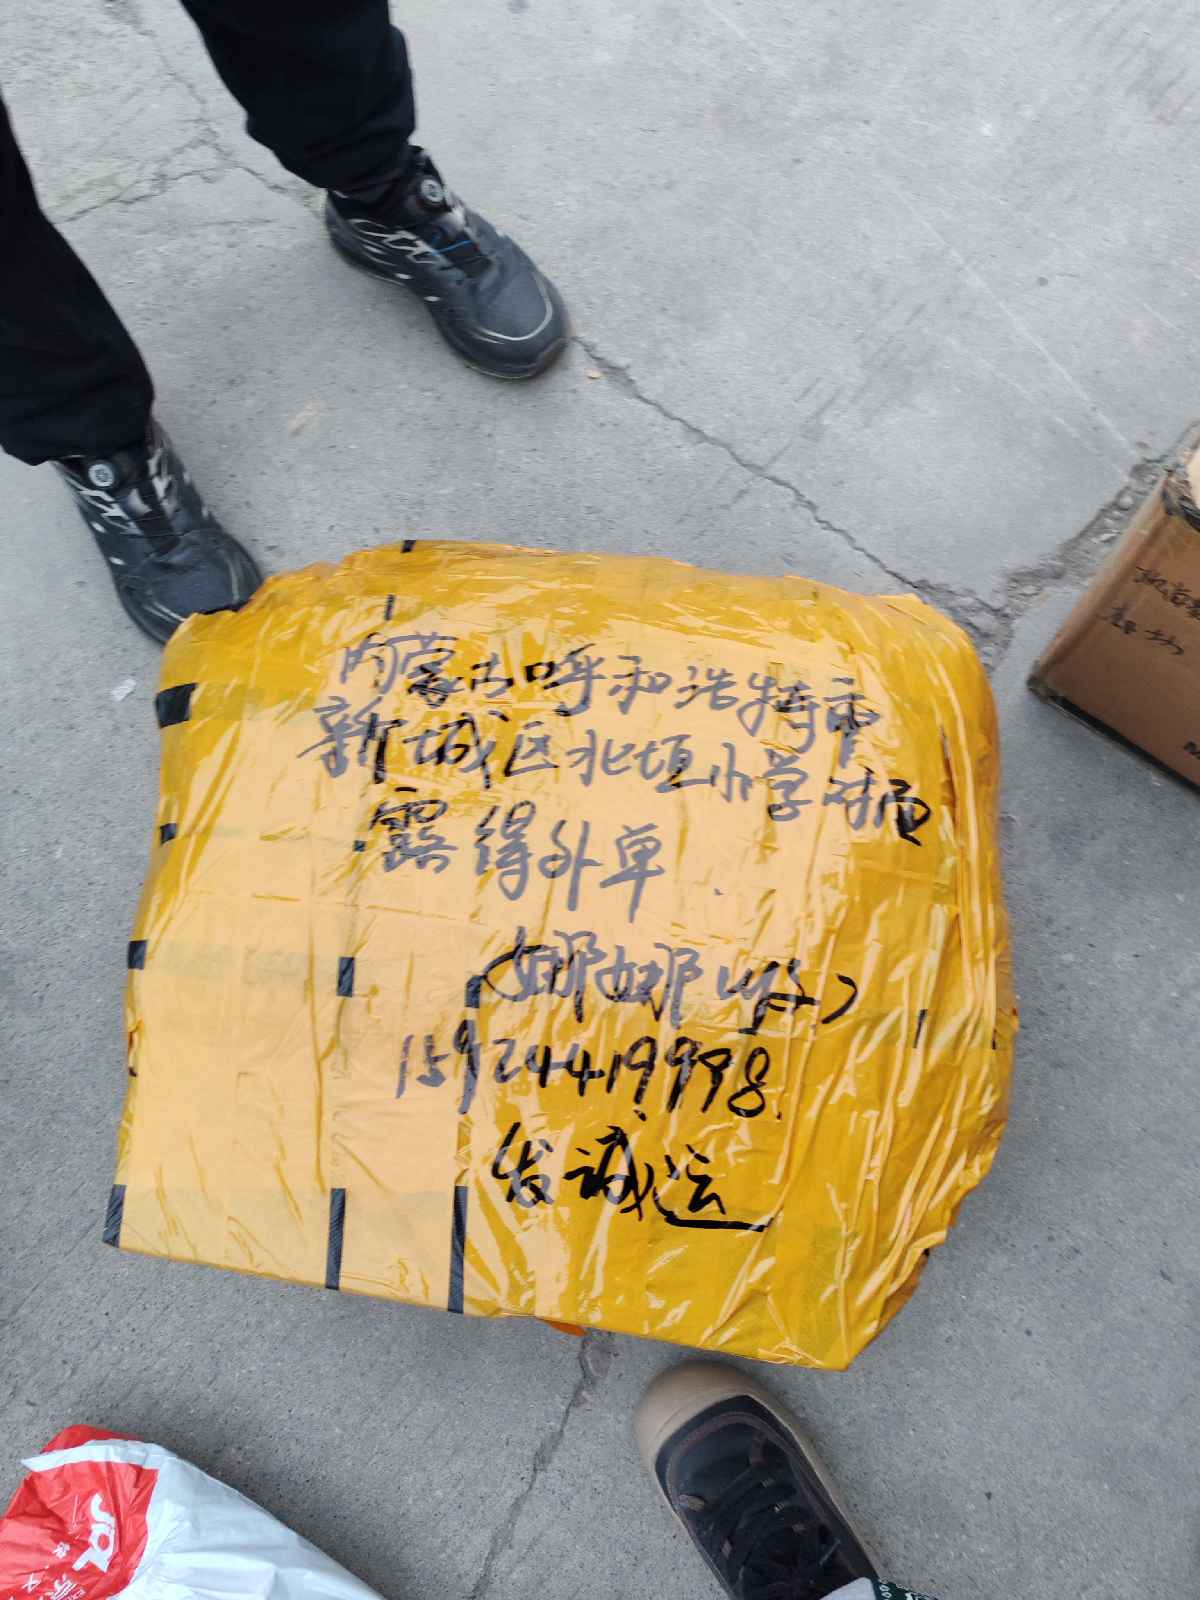 内蒙古呼和浩特市
新城区北垣小学对面
露得外单
娜娜(收)
15924419998
发诚运